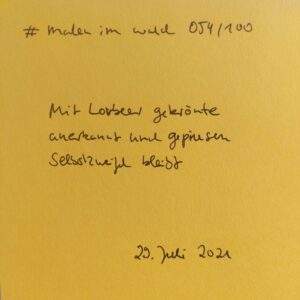 # malen im wald 054/100
Mit Lorbeer gekrönte
anerkannt und gepriesen
Selbstzweifel bleibt
29. Juli 2021